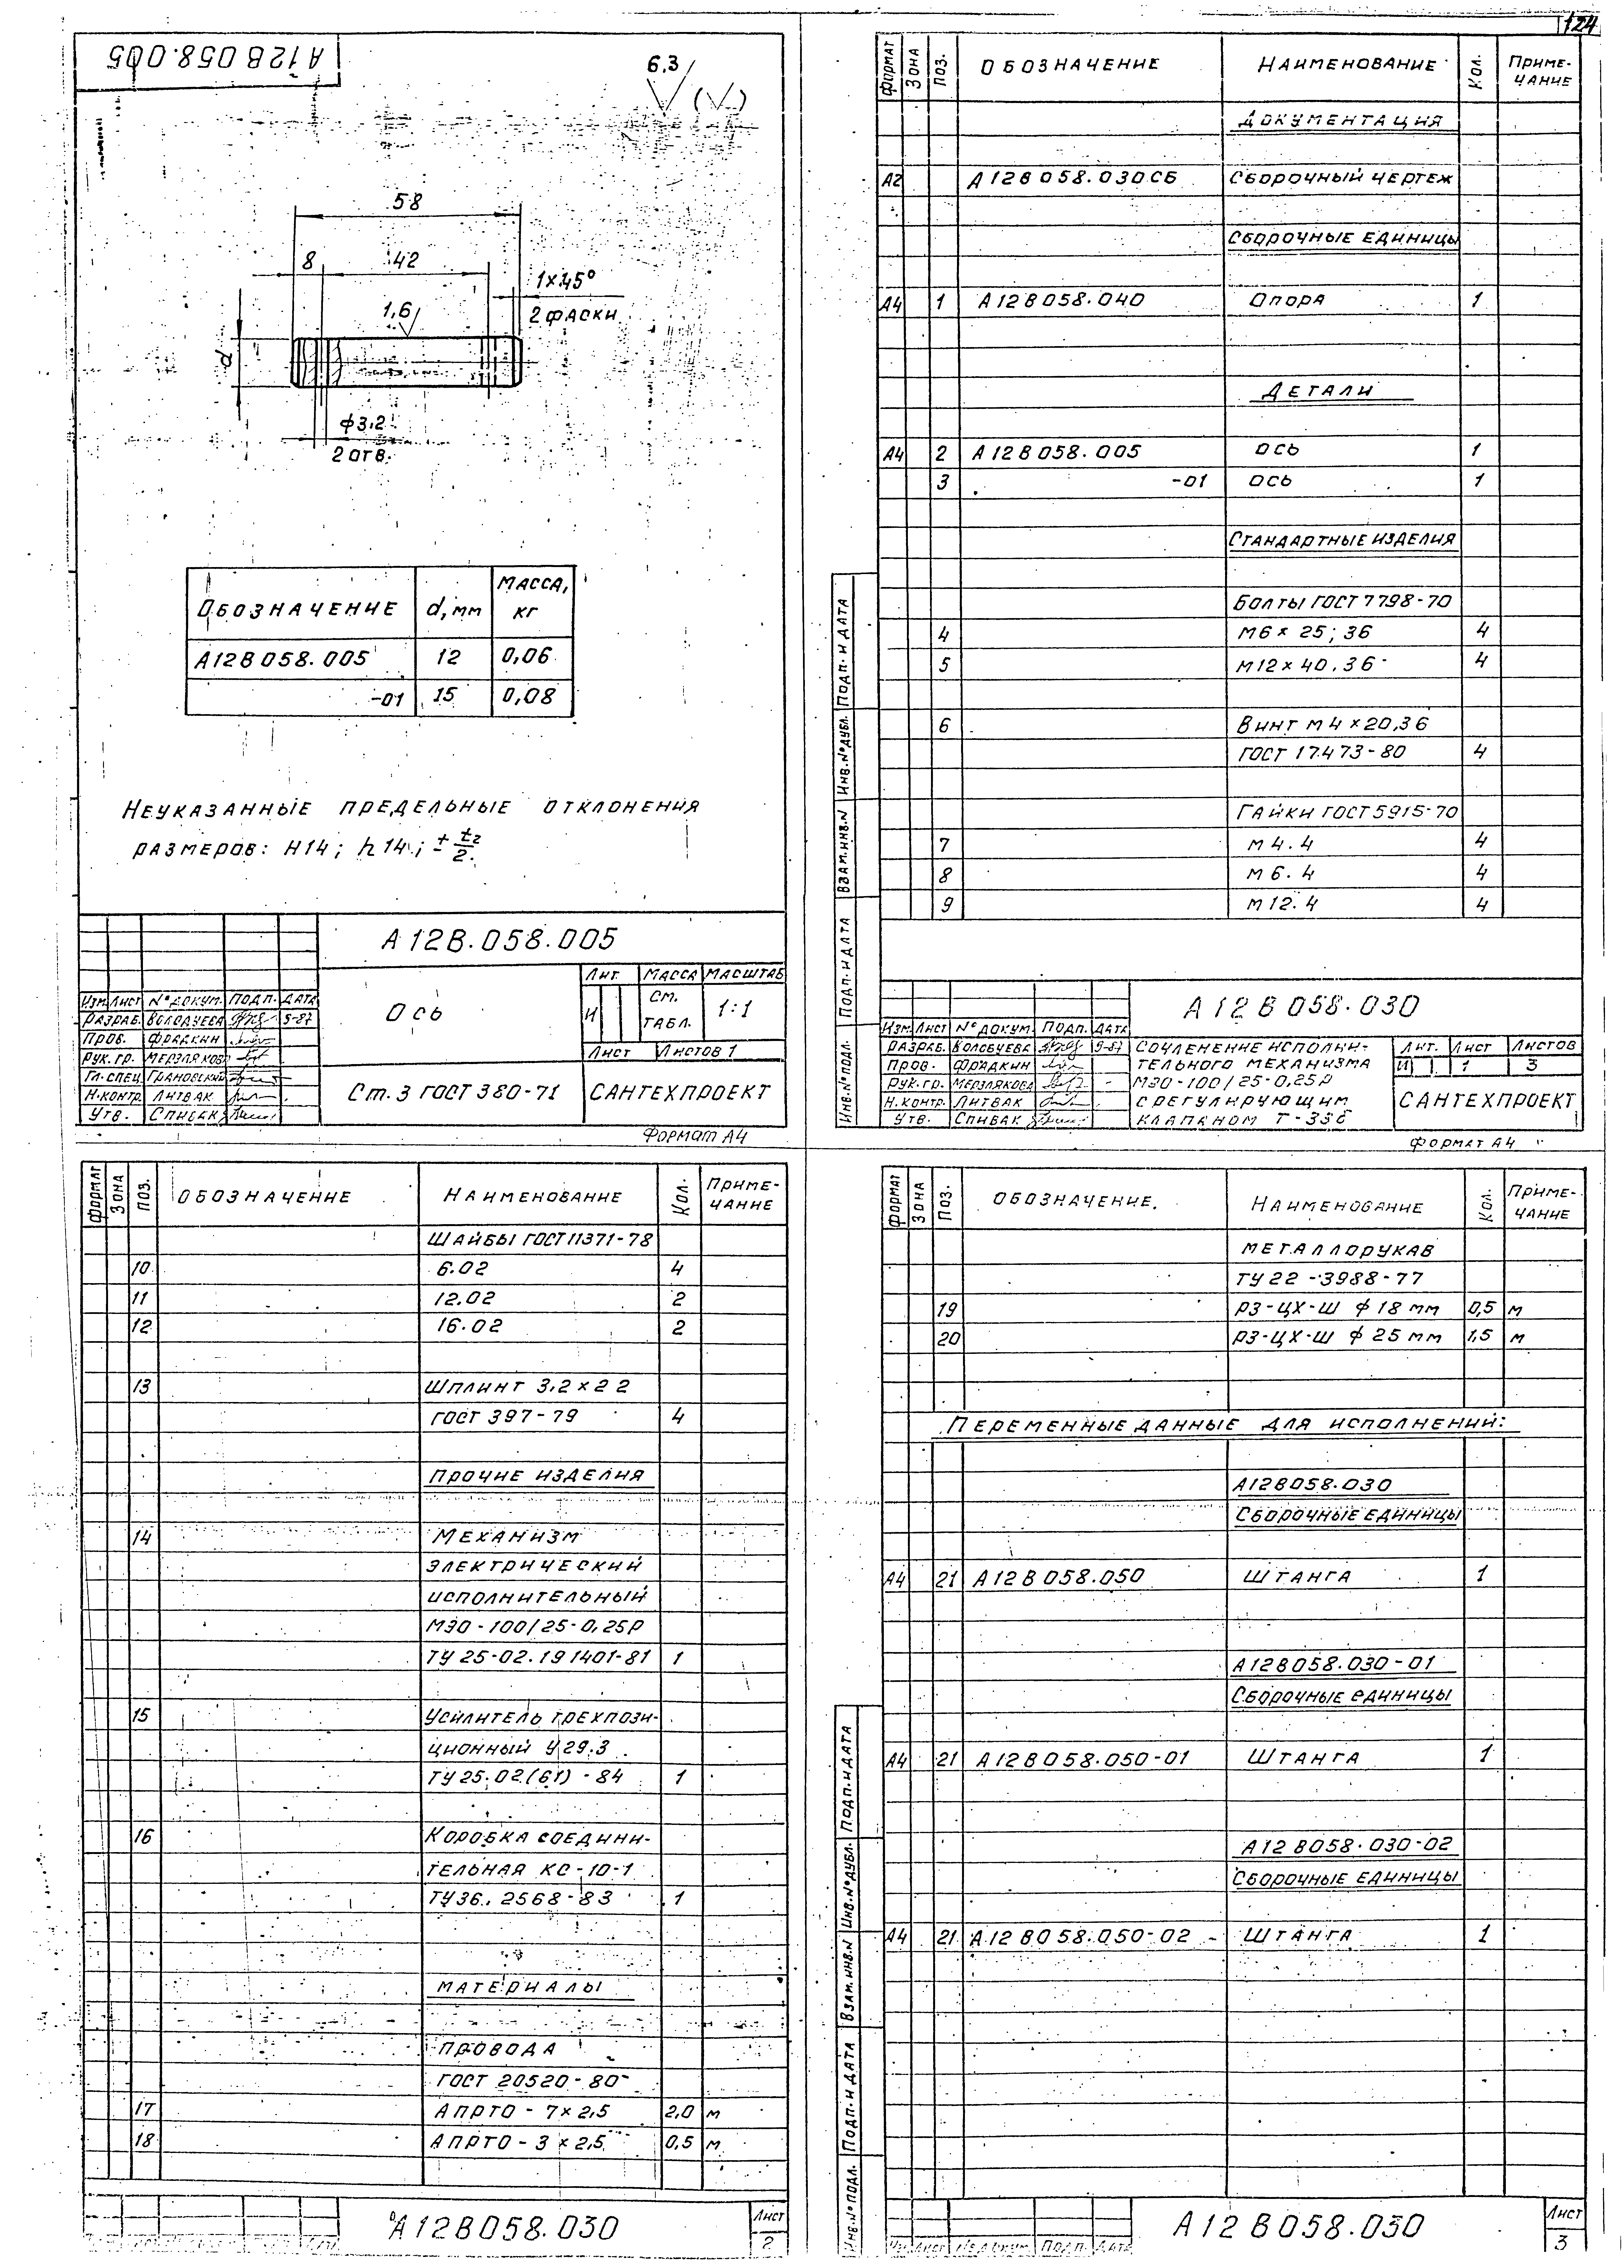 124
А12В 058.005
6.3 (√)
58
8 42
1×45°
2 ФАСКИ
1,6
d
ф3,2
2 ОТВ.
ОБОЗНАЧЕНИЕ d, мм МАССА, КГ
А12В 058.005 12 0,06
-01 15 0,08
НЕУКАЗАННЫЕ ПРЕДЕЛЬНЫЕ ОТКЛОНЕНИЯ
РАЗМЕРОВ: Н14; h14; ± t2/2.
А12В.058.005
ОСЬ
ЛИТ. МАССА МАСШТАБ
И СМ. ТАБЛ. 1:1
ЛИСТ ЛИСТОВ 1
ИЗМ. ЛИСТ № ДОКУМ. ПОДП. ДАТА
РАЗРАБ. ВОЛОБУЕВА 9-87
ПРОВ. ФРАДКИН
РУК. ГР. МЕРЗЛЯКОВА
ГЛ. СПЕЦ. ГРАНОВСКИЙ
Н. КОНТР. ЛИТВАК
УТВ. СПИВАК
Ст. 3 ГОСТ 380-71
САНТЕХПРОЕКТ
ФОРМАТ А4
ФОРМАТ ЗОНА ПОЗ. ОБОЗНАЧЕНИЕ НАИМЕНОВАНИЕ КОЛ. ПРИМЕ-
ЧАНИЕ
ДОКУМЕНТАЦИЯ
А2 А12В 058.030СБ СБОРОЧНЫЙ ЧЕРТЕЖ
СБОРОЧНЫЕ ЕДИНИЦЫ
А4 1 А12В 058.040 ОПОРА 1
ДЕТАЛИ
А4 2 А12В 058.005 ОСЬ 1
3 -01 ОСЬ 1
СТАНДАРТНЫЕ ИЗДЕЛИЯ
БОЛТЫ ГОСТ 7798-70
4 М6 × 25; 36 4
5 М12 × 40.36 4
6 ВИНТ М4 × 20,36
ГОСТ 17473-80 4
ГАЙКИ ГОСТ 5915-70
7 М4.4 4
8 М6.4 4
9 М12.4 4
ПОДП. И ДАТА
ИНВ. № ДУБЛ.
ВЗАМ. ИНВ. N
ПОДП. И ДАТА
ИНВ. № ПОДЛ.
А12В 058.030
ИЗМ. ЛИСТ № ДОКУМ. ПОДП. ДАТА
РАЗРАБ. ВОЛОБУЕВА 9-87
ПРОВ. ФРАДКИН
РУК. ГР. МЕРЗЛЯКОВА
Н. КОНТР. ЛИТВАК
УТВ. СПИВАК
СОЧЛЕНЕНИЕ ИСПОЛНИ-
ТЕЛЬНОГО МЕХАНИЗМА
МЭО-100/25-0,25Р
С РЕГУЛИРУЮЩИМ
КЛАПАНОМ Т-33б
ЛИТ. ЛИСТ ЛИСТОВ
И 1 3
САНТЕХПРОЕКТ
ФОРМАТ А4
ФОРМАТ ЗОНА ПОЗ. ОБОЗНАЧЕНИЕ НАИМЕНОВАНИЕ КОЛ. ПРИМЕ-
ЧАНИЕ
ШАЙБЫ ГОСТ 11371-78
10 6.02 4
11 12.02 2
12 16.02 2
13 ШПЛИНТ 3,2 × 22
ГОСТ 397-79 4
ПРОЧИЕ ИЗДЕЛИЯ
14 МЕХАНИЗМ
ЭЛЕКТРИЧЕСКИЙ
ИСПОЛНИТЕЛЬНЫЙ
МЭО-100/25-0,25Р
ТУ 25-02.191401-81 1
15 УСИЛИТЕЛЬ ТРЕХПОЗИ-
ЦИОННЫЙ У29.3
ТУ 25.02.(61)-84 1
16 КОРОБКА СОЕДИНИ-
ТЕЛЬНАЯ КС-10-1
ТУ 36.2568-83 1
МАТЕРИАЛЫ
ПРОВОДА
ГОСТ 20520-80
17 АПРТО-7×2,5 2,0 м
18 АПРТО-3×2,5 0,5 м
А12В058.030
ЛИСТ
2
ФОРМАТ ЗОНА ПОЗ. ОБОЗНАЧЕНИЕ. НАИМЕНОВАНИЕ КОЛ. ПРИМЕ-
ЧАНИЕ
МЕТАЛЛОРУКАВ
ТУ 22-3988-77
19 РЗ-ЦХ-Ш ф 18 мм 0,5 м
20 РЗ-ЦХ-Ш ф 25 мм 1,5 м
ПЕРЕМЕННЫЕ ДАННЫЕ ДЛЯ ИСПОЛНЕНИЙ:
А12В058.030
СБОРОЧНЫЕ ЕДИНИЦЫ
А4 21 А12В 058.050 ШТАНГА 1
А12В058.030-01
СБОРОЧНЫЕ ЕДИНИЦЫ
А4 21 А12В 058.050-01 ШТАНГА 1
А12В058.030-02
СБОРОЧНЫЕ ЕДИНИЦЫ
А4 21 А12В 058.050-02 ШТАНГА 1
ПОДП. И ДАТА
ИНВ. № ДУБЛ.
ВЗАМ. ИНВ. N
ПОДП. И ДАТА
ИНВ. № ПОДЛ.
А12В058.030
ЛИСТ
3